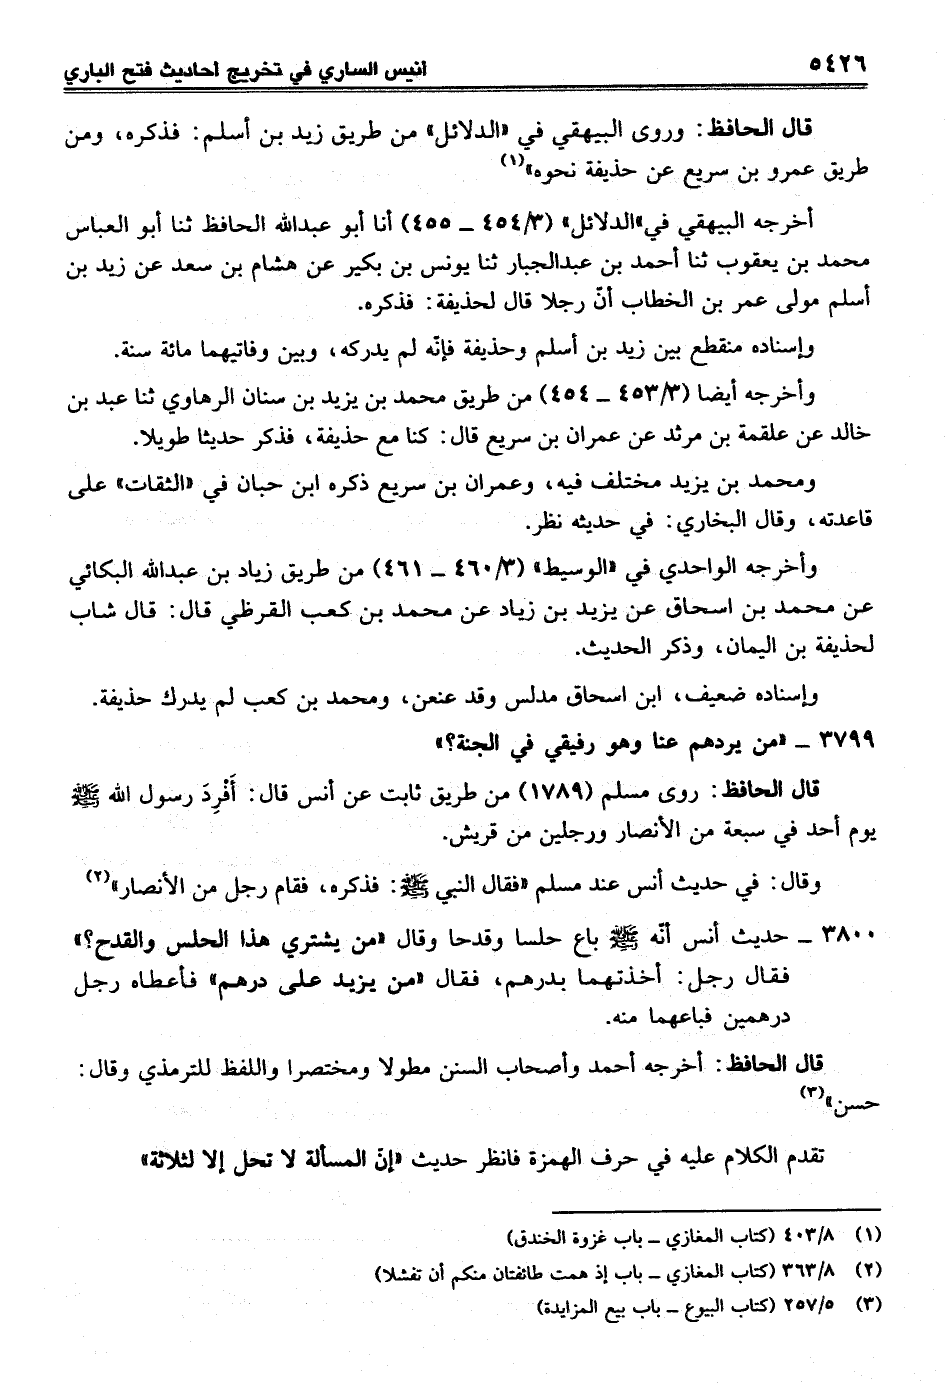 ٥٤٢٦
أنيس الساري في تخريج أحاديث فتح الباري
قال الحافظ: وروى البيهقي في «الدلائل» من طريق زيد بن أسلم: فذكره، ومن
طريق عمرو بن سريع عن حذيفة نحوه»(١)
أخرجه البيهقي في«الدلائل» (٤٥٤/٣ ـ ٤٥٥) أنا أبو عبدالله الحافظ ثنا أبو العباس
محمد بن يعقوب ثنا أحمد بن عبدالجبار ثنا يونس بن بكير عن هشام بن سعد عن زيد بن
أسلم مولى عمر بن الخطاب أنّ رجلا قال لحذيفة: فذكره.
وإسناده منقطع بين زيد بن أسلم وحذيفة فإنّه لم يدركه، وبين وفاتيهما مائة سنة.
وأخرجه أيضا (٤٥٣/٣ ـ ٤٥٤) من طريق محمد بن يزيد بن سنان الرهاوي ثنا عبد بن
خالد عن علقمة بن مرثد عن عمران بن سريع قال: كنا مع حذيفة، فذكر حديثا طويلا.
ومحمد بن يزيد مختلف فيه، وعمران بن سريع ذكره ابن حبان في «الثقات» على
قاعدته، وقال البخاري: في حديثه نظر.
وأخرجه الواحدي في «الوسيط» (٤٦٠/٣ ـ ٤٦١) من طريق زياد بن عبدالله البكائي
عن محمد بن اسحاق عن يزيد بن زياد عن محمد بن كعب القرظي قال: قال شاب
لحذيفة بن اليمان، وذكر الحديث.
وإسناده ضعيف، ابن اسحاق مدلس وقد عنعن، ومحمد بن كعب لم يدرك حذيفة.
٣٧٩٩ ـ «من يردهم عنا وهو رفيقي في الجنة؟»
قال الحافظ: روى مسلم (١٧٨٩) من طريق ثابت عن أنس قال: أَفْرِدَ رسول الله ﷺ
يوم أحد في سبعة من الأنصار ورجلين من قريش.
وقال: في حديث أنس عند مسلم «فقال النبي ﷺ: فذكره، فقام رجل من الأنصار»(٢)
٣٨٠٠ ـ حديث أنس أنّه ﷺ باع حلسا وقدحا وقال «من يشتري هذا الحلس والقدح؟»
فقال رجل: أخذتهما بدرهم، فقال «من يزيد على درهم» فأعطاه رجل
درهمين فباعهما منه.
قال الحافظ: أخرجه أحمد وأصحاب السنن مطولا ومختصرا واللفظ للترمذي وقال:
حسن»(٣)
تقدم الكلام عليه في حرف الهمزة فانظر حديث «إنّ المسألة لا تحل إلا لثلاثة»
(١) ٤٠٣/٨ (كتاب المغازي ـ باب غزوة الخندق)
(٢) ٣٦٣/٨ (كتاب المغازي ـ باب إذ همت طائفتان منكم أن تفشلا)
(٣) ٢٥٧/٥ (كتاب البيوع ـ باب بيع المزايدة)